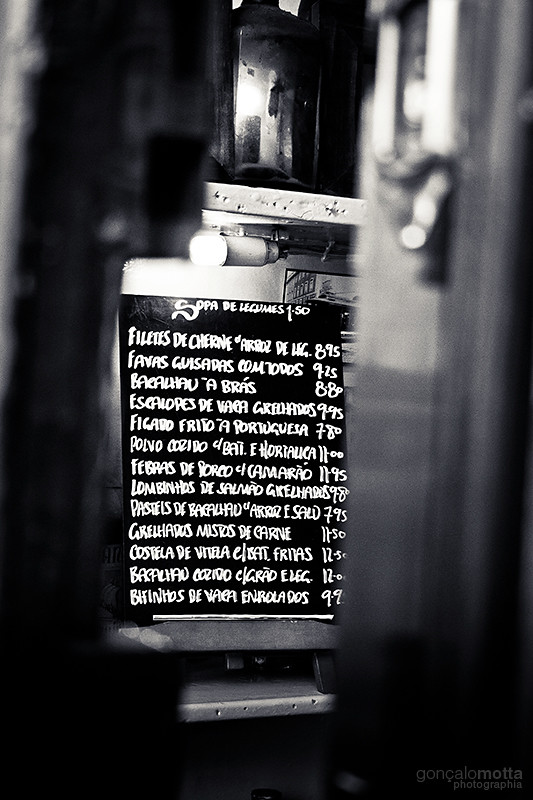 SOPA DE LEGUMES 1.50
FILETES DE CHERNE c/ARROZ DE LEG. 895
FAVAS GUISADAS COM TODOS 925
BACALHAU À BRÁS 880
ESCALOPES DE VACA GRELHADOS 995
FIGADO FRITO À PORTUGUESA 780
POLVO COZIDO c/BAT. E HORTALIÇA 11.00
FEBRAS DE PORCO c/CAMARÃO 11.95
LOMBINHOS DE SALMÃO GRELHADOS 980
PASTEIS DE BACALHAU c/ARROZ E SALD 795
GRELHADOS MISTOS DE CARNE 11.50
COSTELA DE VITELA c/BAT. FRITAS
BACALHAU COZIDO c/GRÃO E LEG.
BIFINHOS DE VACA ENROLADOS
gonçalomotta
photographia